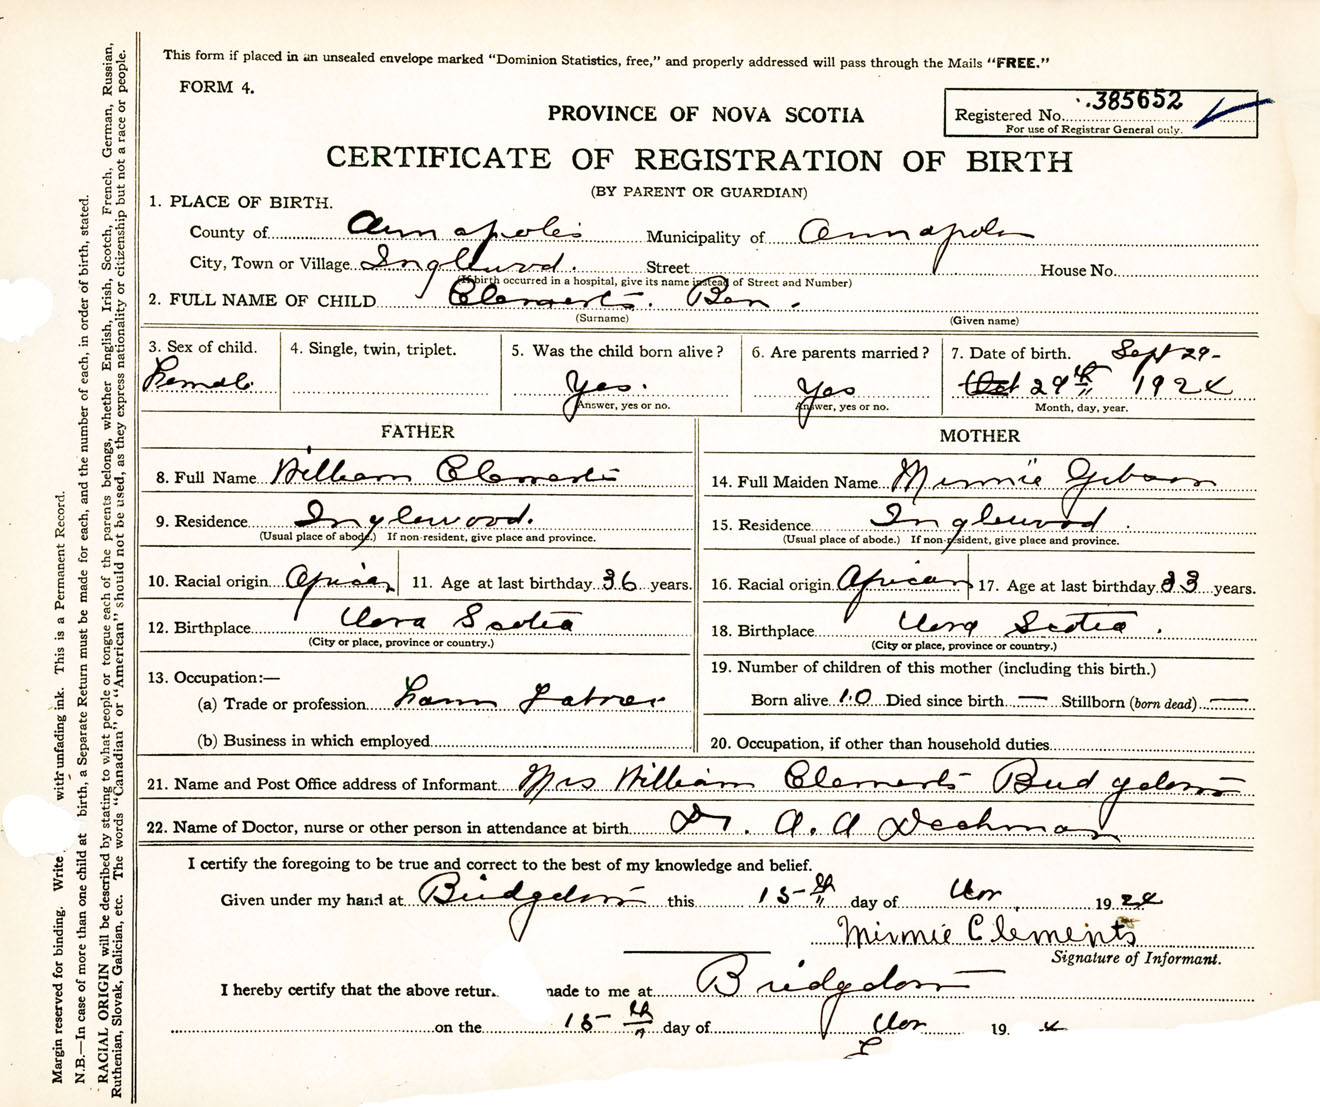 This form if placed in an unsealed envelope marked "Dominion Statistics, free," and properly addressed will pass through the Mails "FREE."
FORM 4.
PROVINCE OF NOVA SCOTIA
Registered No. 385652
For use of Registrar General only.
CERTIFICATE OF REGISTRATION OF BIRTH
(BY PARENT OR GUARDIAN)
1. PLACE OF BIRTH.
County of Annapolis Municipality of Annapolis
City, Town or Village Inglewood. Street House No.
(If birth occurred in a hospital, give its name instead of Street and Number)
2. FULL NAME OF CHILD Clements. Ben.
(Surname) (Given name)
3. Sex of child. 4. Single, twin, triplet. 5. Was the child born alive? 6. Are parents married? 7. Date of birth. Sept 29-
Female Yes. Yes Oct 29th 1924
Answer, yes or no. Answer, yes or no. Month, day, year.
FATHER MOTHER
8. Full Name William Clements 14. Full Maiden Name Minnie Gibson
9. Residence Inglewood. 15. Residence Inglewood.
(Usual place of abode.) If non-resident, give place and province. (Usual place of abode.) If non-resident, give place and province.
10. Racial origin African 11. Age at last birthday 36 years. 16. Racial origin African 17. Age at last birthday 33 years.
12. Birthplace Nova Scotia 18. Birthplace Nova Scotia.
(City or place, province or country.) (City or place, province or country.)
13. Occupation:— 19. Number of children of this mother (including this birth.)
(a) Trade or profession Farm Labrer Born alive 10 Died since birth — Stillborn (born dead) —
(b) Business in which employed 20. Occupation, if other than household duties
21. Name and Post Office address of Informant Mrs William Clements Bridgetown
22. Name of Doctor, nurse or other person in attendance at birth Dr. A. A Dechman
I certify the foregoing to be true and correct to the best of my knowledge and belief.
Given under my hand at Bridgetown this 15th day of Nov. 1924
Minnie Clements
Signature of Informant.
I hereby certify that the above return made to me at Bridgetown
on the 15th day of Nov 19 4
Margin reserved for binding. Write with unfading ink. This is a Permanent Record.
N.B.—In case of more than one child at birth, a Separate Return must be made for each, and the number of each, in order of birth, stated.
RACIAL ORIGIN will be described by stating to what people or tongue each of the parents belongs, whether English, Irish, Scotch, French, German, Russian,
Ruthenian, Slovak, Galician, etc. The words "Canadian" or "American" should not be used, as they express nationality or citizenship but not a race or people.